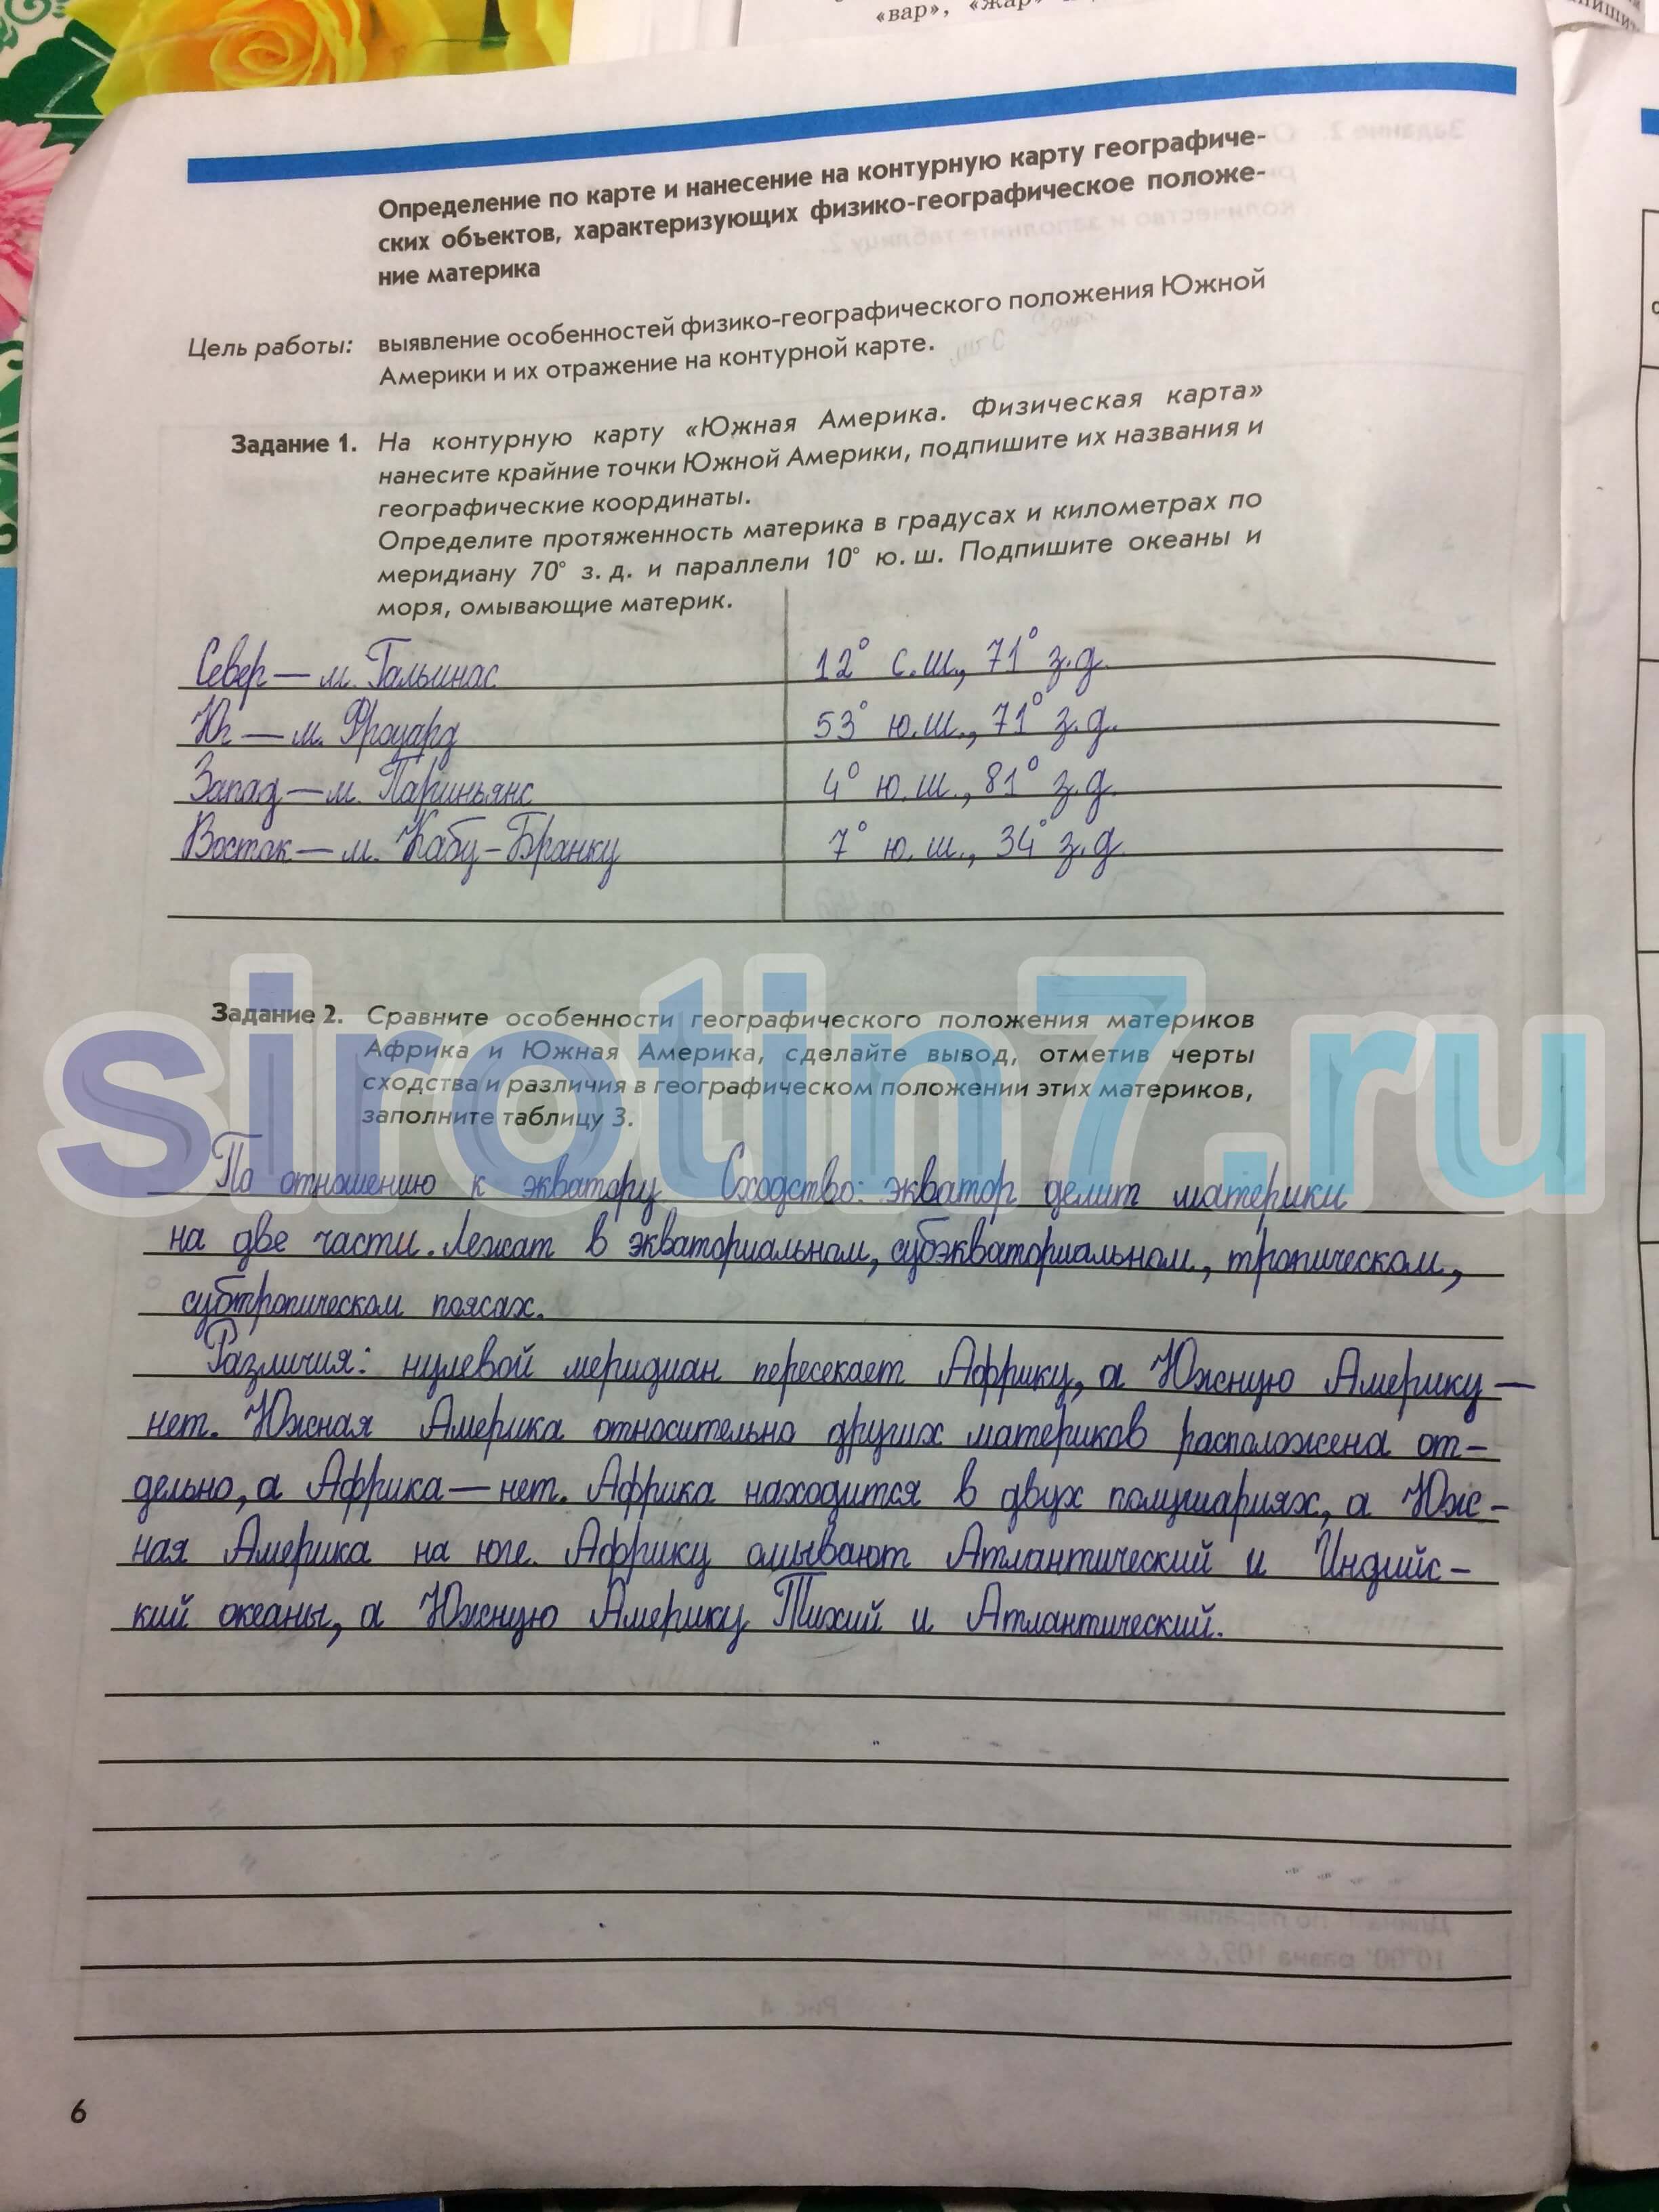 «вар», «жар»
Определение по карте и нанесение на контурную карту географиче-
ских объектов, характеризующих физико-географическое положе-
ние материка
Цель работы: выявление особенностей физико-географического положения Южной
Америки и их отражение на контурной карте.
Задание 1. На контурную карту «Южная Америка. Физическая карта»
нанесите крайние точки Южной Америки, подпишите их названия и
географические координаты.
Определите протяженность материка в градусах и километрах по
меридиану 70° з. д. и параллели 10° ю. ш. Подпишите океаны и
моря, омывающие материк.
Север — м. Гальинас 12° с.ш., 71° з.д.
Юг — м. Фроуард 53° ю.ш., 71° з.д.
Запад — м. Париньянс 4° ю.ш., 81° з.д.
Восток — м. Кабу-Бранку 7° ю.ш., 34° з.д.
Задание 2. Сравните особенности географического положения материков
Африка и Южная Америка, сделайте вывод, отметив черты
сходства и различия в географическом положении этих материков,
заполните таблицу 3.
sirotin7.ru
По отношению к экватору Сходство: экватор делит материки
на две части. Лежат в экваториальном, субэкваториальном, тропическом,
субтропическом поясах.
Различия: нулевой меридиан пересекает Африку, а Южную Америку —
нет. Южная Америка относительно других материков расположена от-
дельно, а Африка — нет. Африка находится в двух полушариях, а Юж-
ная Америка на юге. Африку омывают Атлантический и Индийс-
кий океаны, а Южную Америку Тихий и Атлантический.
6